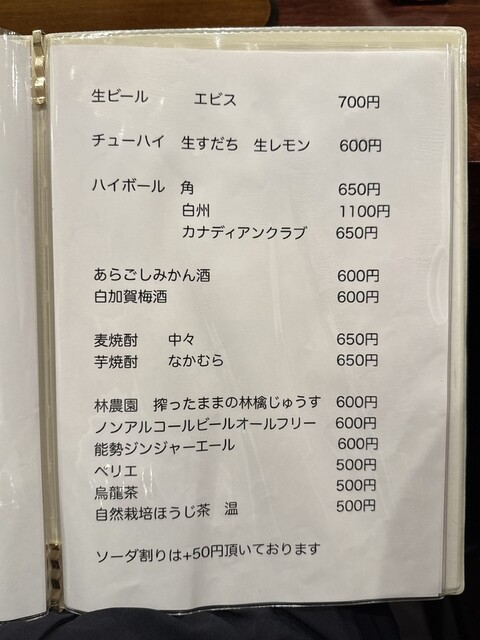 生ビール エビス 700円
チューハイ 生すだち 生レモン 600円
ハイボール 角 650円
白州 1100円
カナディアンクラブ 650円
あらごしみかん酒 600円
白加賀梅酒 600円
麦焼酎 中々 650円
芋焼酎 なかむら 650円
林農園 搾ったままの林檎じゅうす 600円
ノンアルコールビールオールフリー 600円
能勢ジンジャーエール 600円
ペリエ 500円
烏龍茶 500円
自然栽培ほうじ茶 温 500円
ソーダ割りは+50円頂いております